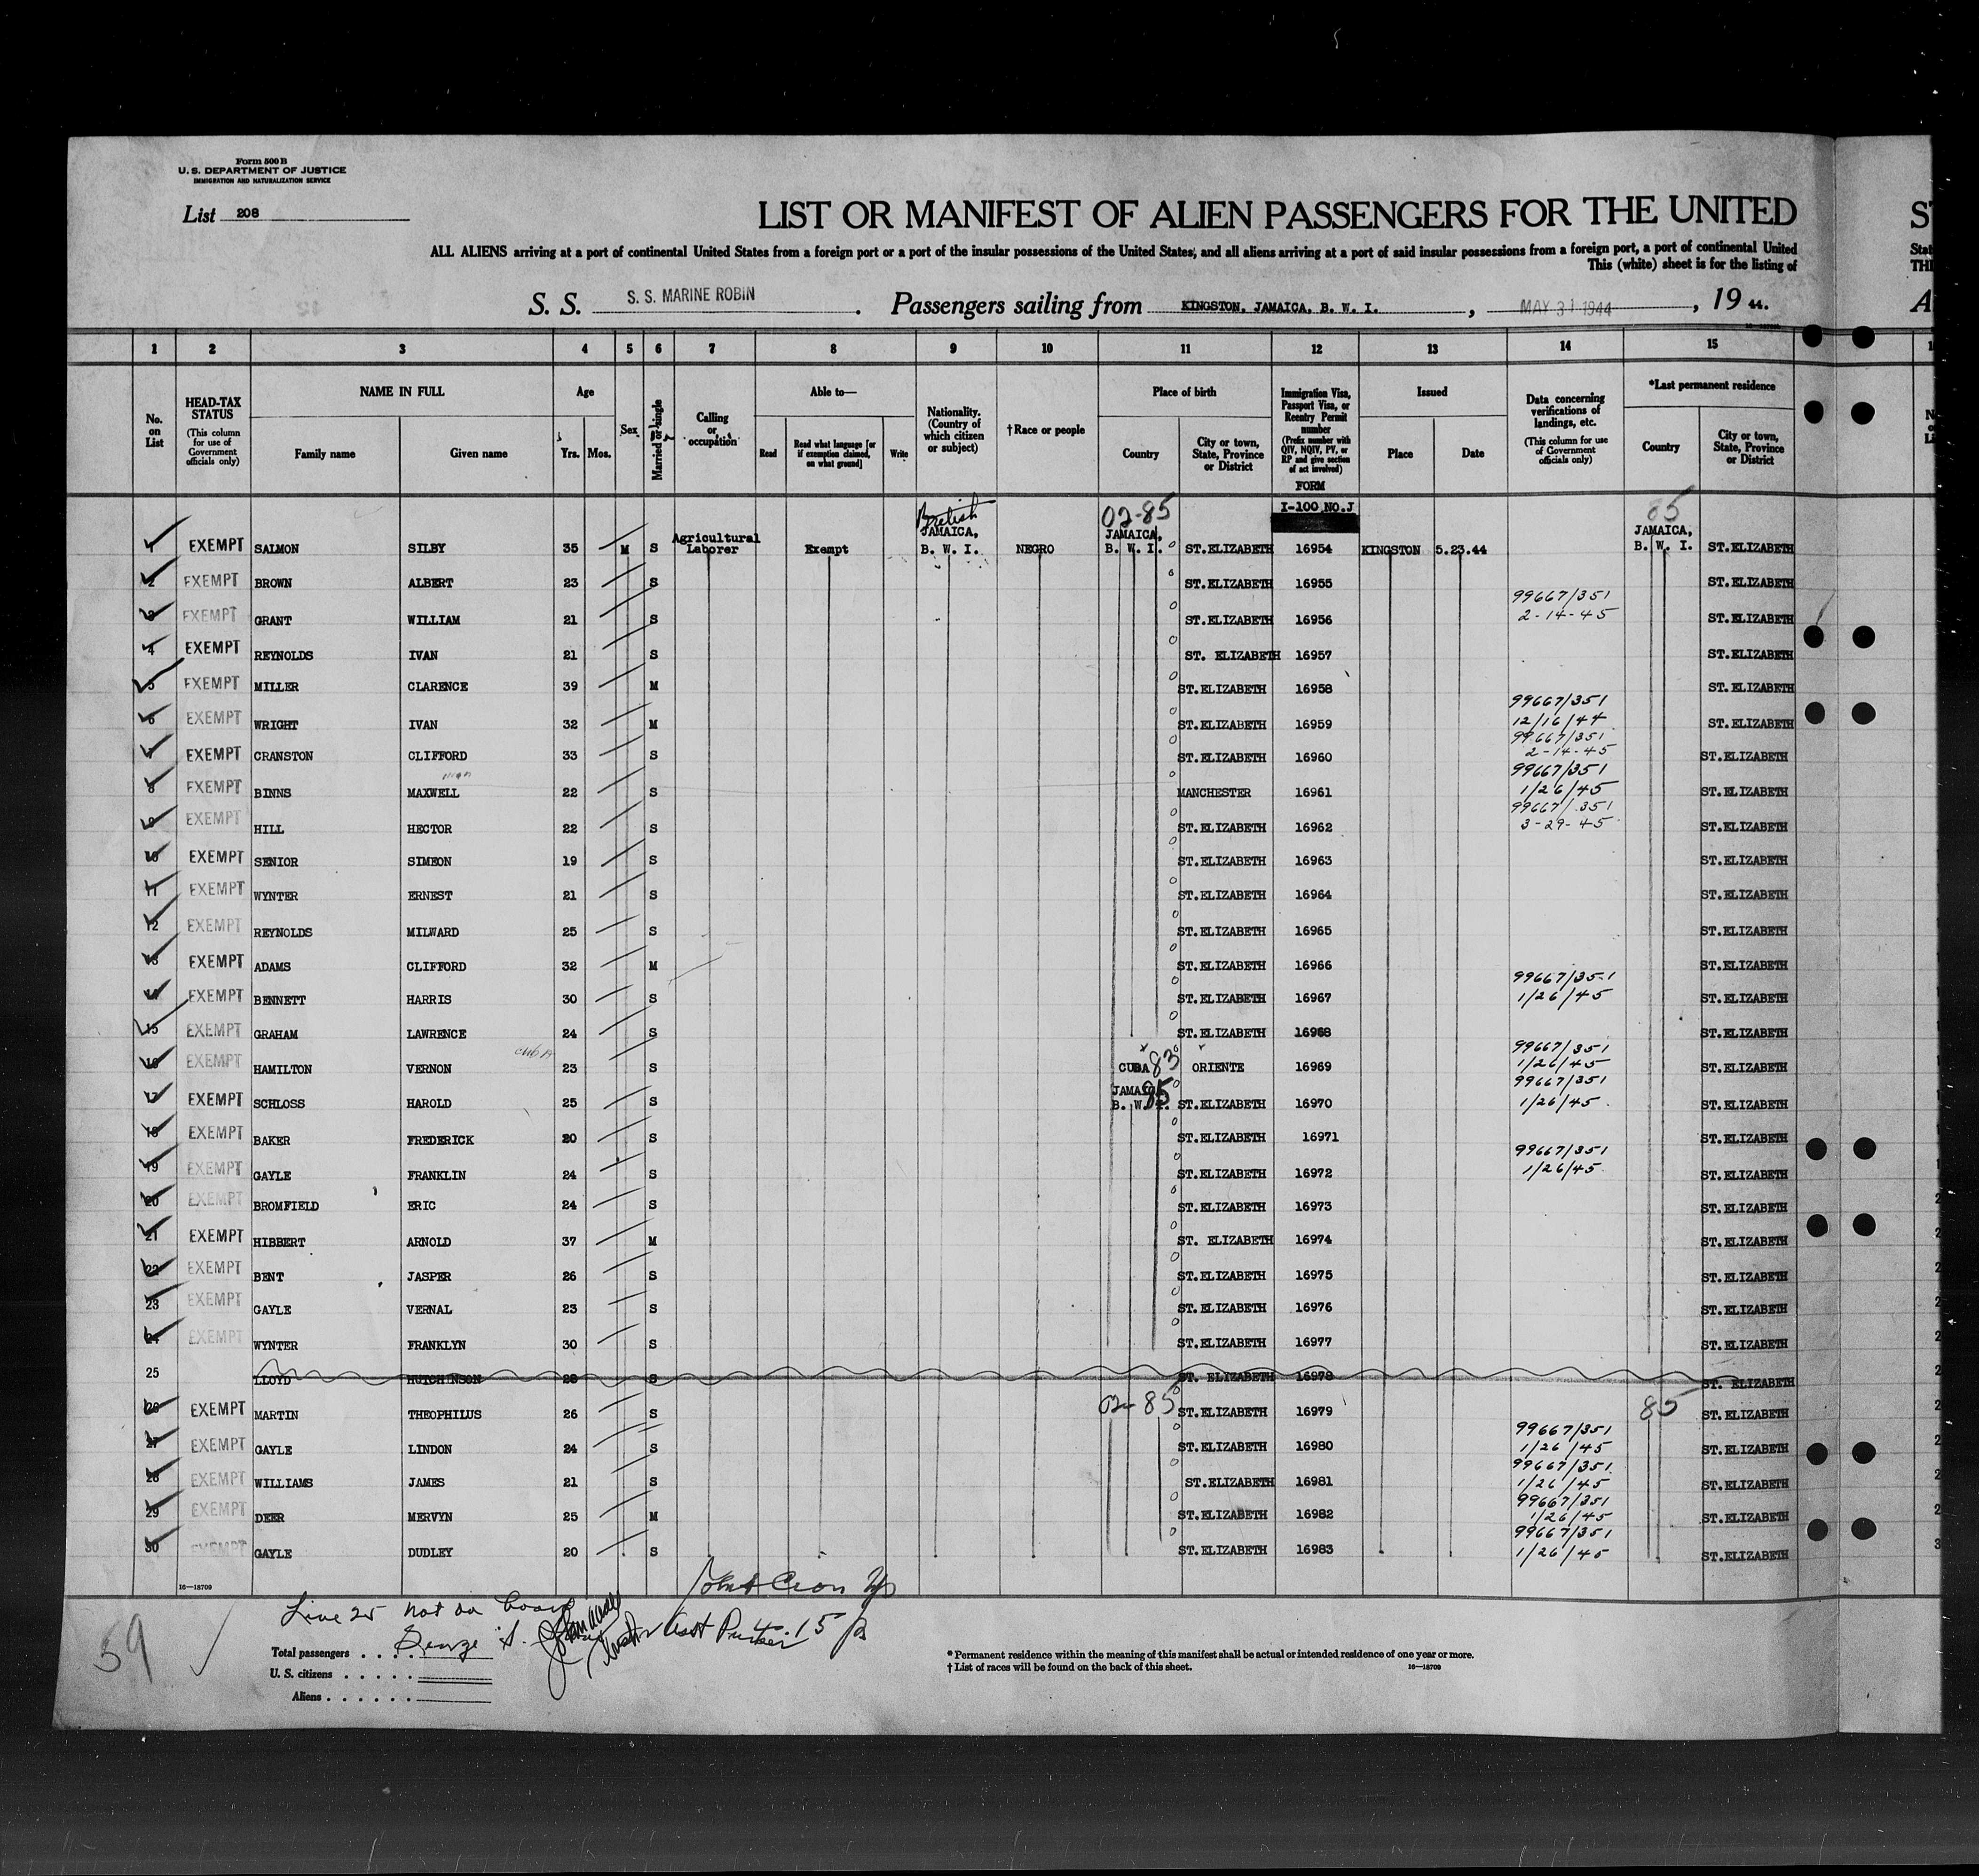 Form 500 B
U. S. DEPARTMENT OF JUSTICE
IMMIGRATION AND NATURALIZATION SERVICE
List 208
LIST OR MANIFEST OF ALIEN PASSENGERS FOR THE UNITED
ALL ALIENS arriving at a port of continental United States from a foreign port or a port of the insular possessions of the United States, and all aliens arriving at a port of said insular possessions from a foreign port, a port of continental United
This (white) sheet is for the listing of
S. S. S. S. MARINE ROBIN . Passengers sailing from KINGSTON, JAMAICA, B. W. I. , MAY 31 1944 , 19 44.
16—18709
1 2 3 4 5 6 7 8 9 10 11 12 13 14 15
No. on List
HEAD-TAX STATUS (This column for use of Government officials only)
NAME IN FULL
Family name Given name
Age
Yrs. Mos.
Sex
Married or single
Calling or occupation
Able to—
Read Read what language [or if exemption claimed, on what ground] Write
Nationality. (Country of which citizen or subject)
†Race or people
Place of birth
Country City or town, State, Province or District
Immigration Visa, Passport Visa, or Reentry Permit number (Prefix number with QIV, NQIV, PV, or RP and give section of act involved)
FORM
I-100 NO.J
Issued
Place Date
Data concerning verifications of landings, etc. (This column for use of Government officials only)
*Last permanent residence
Country City or town, State, Province or District
British 02-85 85
JAMAICA, JAMAICA, JAMAICA,
1 EXEMPT SALMON SILBY 35 M S Agricultural Laborer Exempt B. W. I. NEGRO B. W. I. ST.ELIZABETH 16954 KINGSTON 5.23.44 B. W. I. ST.ELIZABETH
2 EXEMPT BROWN ALBERT 23 S ST.ELIZABETH 16955 ST.ELIZABETH
3 EXEMPT GRANT WILLIAM 21 S ST.ELIZABETH 16956 99667/351 2-14-45 ST.ELIZABETH
4 EXEMPT REYNOLDS IVAN 21 S ST. ELIZABETH 16957 ST.ELIZABETH
5 EXEMPT MILLER CLARENCE 39 M ST.ELIZABETH 16958 ST.ELIZABETH
6 EXEMPT WRIGHT IVAN 32 M ST.ELIZABETH 16959 99667/351 12/16/44 ST.ELIZABETH
7 EXEMPT CRANSTON CLIFFORD 33 S ST.ELIZABETH 16960 99667/351 2-14-45 ST.ELIZABETH
8 EXEMPT BINNS MAXWELL 22 S MANCHESTER 16961 99667/351 1/26/45 ST.ELIZABETH
9 EXEMPT HILL HECTOR 22 S ST.ELIZABETH 16962 99667/351 3-29-45 ST.ELIZABETH
10 EXEMPT SENIOR SIMEON 19 S ST.ELIZABETH 16963 ST.ELIZABETH
11 EXEMPT WYNTER ERNEST 21 S ST.ELIZABETH 16964 ST.ELIZABETH
12 EXEMPT REYNOLDS MILWARD 25 S ST.ELIZABETH 16965 ST.ELIZABETH
13 EXEMPT ADAMS CLIFFORD 32 M ST.ELIZABETH 16966 ST.ELIZABETH
14 EXEMPT BENNETT HARRIS 30 S ST.ELIZABETH 16967 99667/351 1/26/45 ST.ELIZABETH
15 EXEMPT GRAHAM LAWRENCE 24 S ST.ELIZABETH 16968 ST.ELIZABETH
16 EXEMPT HAMILTON VERNON CUBA 23 S CUBA 83 ORIENTE 16969 99667/351 1/26/45 ST.ELIZABETH
17 EXEMPT SCHLOSS HAROLD 25 S JAMAICA 85 B. W. I. ST.ELIZABETH 16970 99667/351 1/26/45 ST.ELIZABETH
18 EXEMPT BAKER FREDERICK 20 S ST.ELIZABETH 16971 ST.ELIZABETH
19 EXEMPT GAYLE FRANKLIN 24 S ST.ELIZABETH 16972 99667/351 1/26/45 ST.ELIZABETH
20 EXEMPT BROMFIELD ERIC 24 S ST.ELIZABETH 16973 ST.ELIZABETH
21 EXEMPT HIBBERT ARNOLD 37 M ST. ELIZABETH 16974 ST.ELIZABETH
22 EXEMPT BENT JASPER 26 S ST.ELIZABETH 16975 ST.ELIZABETH
23 EXEMPT GAYLE VERNAL 23 S ST.ELIZABETH 16976 ST.ELIZABETH
24 EXEMPT WYNTER FRANKLYN 30 S ST.ELIZABETH 16977 ST.ELIZABETH
25 LLOYD HUTCHINSON 28 S ST. ELIZABETH 16978 ST. ELIZABETH
26 EXEMPT MARTIN THEOPHILUS 26 S 02-85 ST.ELIZABETH 16979 85 ST.ELIZABETH
27 EXEMPT GAYLE LINDON 24 S ST.ELIZABETH 16980 99667/351 1/26/45 ST.ELIZABETH
28 EXEMPT WILLIAMS JAMES 21 S ST.ELIZABETH 16981 99667/351 1/26/45 ST.ELIZABETH
29 EXEMPT DEER MERVYN 25 M ST.ELIZABETH 16982 99667/351 1/26/45 ST.ELIZABETH
30 EXEMPT GAYLE DUDLEY 20 S ST.ELIZABETH 16983 99667/351 1/26/45 ST.ELIZABETH
16—18709
Line 25 not on board
George S.
Asst Purser
59
Total passengers . . . .
U. S. citizens . . . . .
Aliens . . . . . .
* Permanent residence within the meaning of this manifest shall be actual or intended residence of one year or more.
† List of races will be found on the back of this sheet.
16—18709